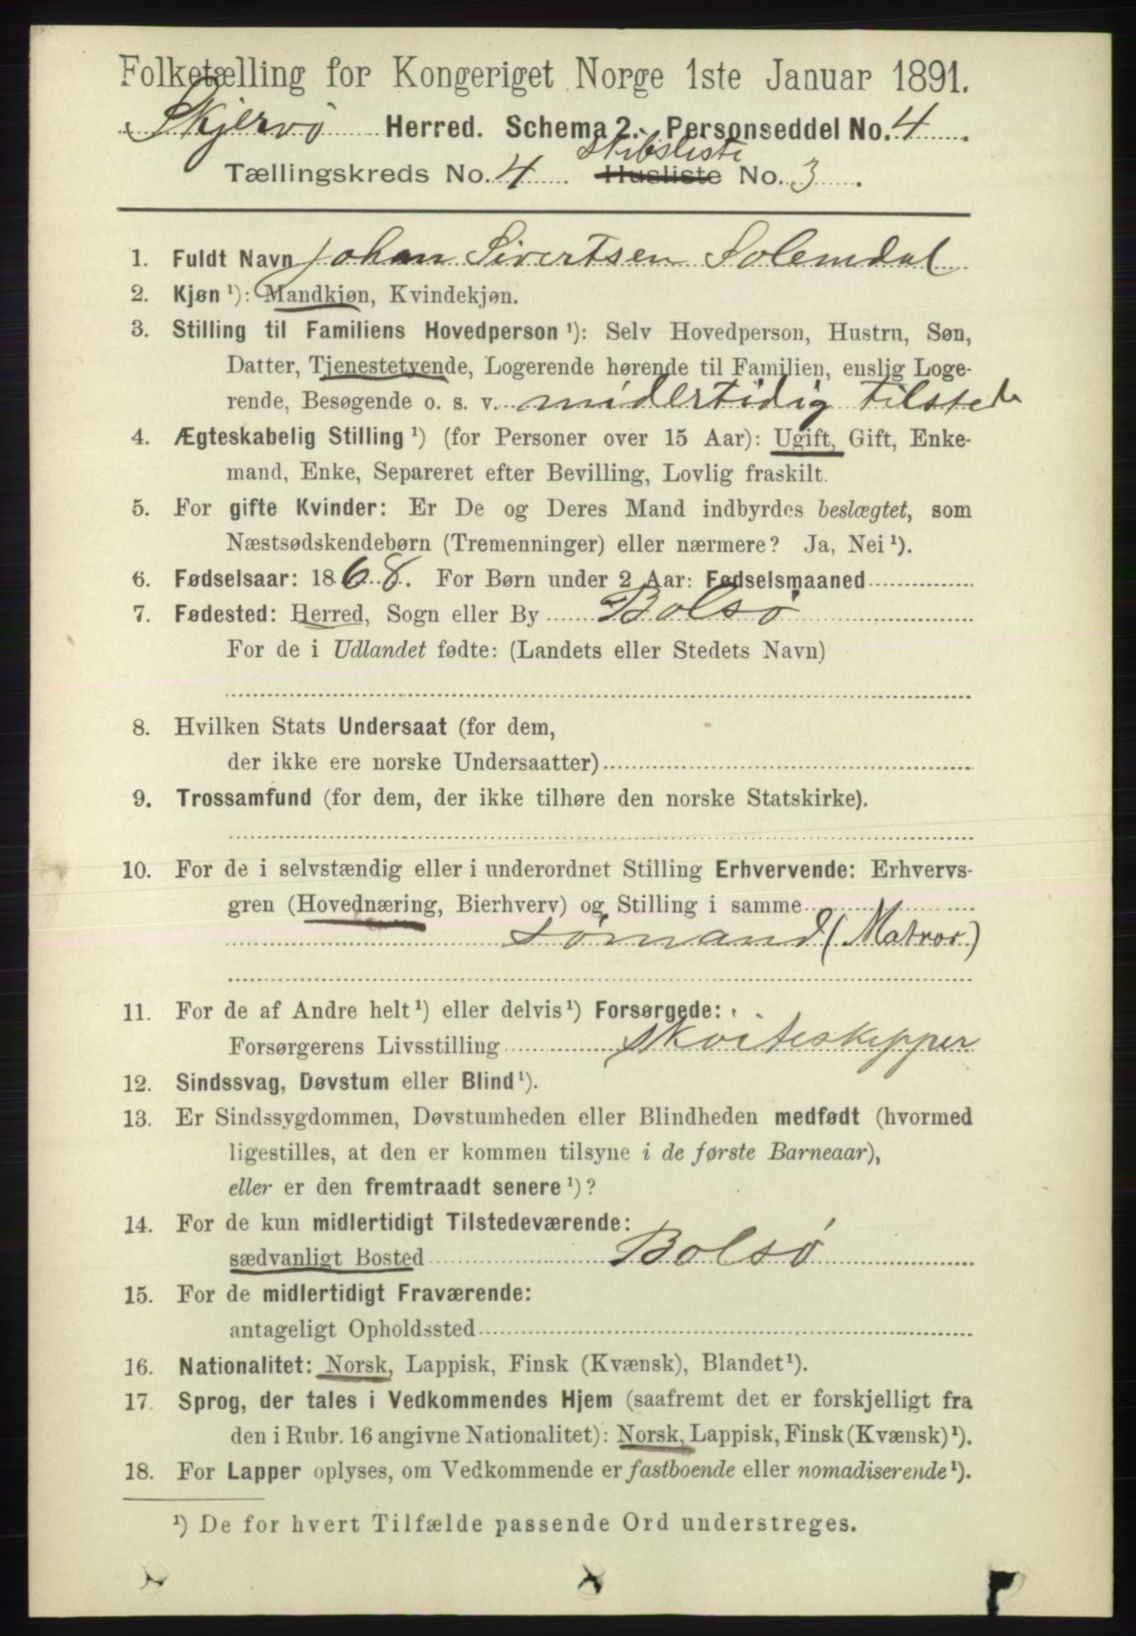 Folketælling for Kongeriget Norge 1ste Januar 1891.
Skjervø Herred. Schema 2. Personseddel No. 4.
Skibsliste
Tællingskreds No. 4 Husliste No. 3.
1. Fuldt Navn Johan Sivertsen Solemdal
2. Kjøn ¹): Mandkjøn, Kvindekjøn.
3. Stilling til Familiens Hovedperson ¹): Selv Hovedperson, Hustru, Søn,
Datter, Tjenestetyende, Logerende hørende til Familien, enslig Loge-
rende, Besøgende o. s. v. midlertidig tilstede
4. Ægteskabelig Stilling ¹) (for Personer over 15 Aar): Ugift, Gift, Enke-
mand, Enke, Separeret efter Bevilling, Lovlig fraskilt.
5. For gifte Kvinder: Er De og Deres Mand indbyrdes beslægtet, som
Næstsødskendebørn (Tremenninger) eller nærmere? Ja, Nei ¹).
6. Fødselsaar: 1868. For Børn under 2 Aar: Fødselsmaaned
7. Fødested: Herred, Sogn eller By Bolsø
For de i Udlandet fødte: (Landets eller Stedets Navn)
8. Hvilken Stats Undersaat (for dem,
der ikke ere norske Undersaatter)
9. Trossamfund (for dem, der ikke tilhøre den norske Statskirke).
10. For de i selvstændig eller i underordnet Stilling Erhvervende: Erhvervs-
gren (Hovednæring, Bierhverv) og Stilling i samme
sømand (Matros)
11. For de af Andre helt ¹) eller delvis ¹) Forsørgede:
Forsørgerens Livsstilling skøiteskipper
12. Sindssvag, Døvstum eller Blind ¹).
13. Er Sindssygdommen, Døvstumheden eller Blindheden medfødt (hvormed
ligestilles, at den er kommen tilsyne i de første Barneaar),
eller er den fremtraadt senere ¹)?
14. For de kun midlertidigt Tilstedeværende:
sædvanligt Bosted Bolsø
15. For de midlertidigt Fraværende:
antageligt Opholdssted
16. Nationalitet: Norsk, Lappisk, Finsk (Kvænsk), Blandet ¹).
17. Sprog, der tales i Vedkommendes Hjem (saafremt det er forskjelligt fra
den i Rubr. 16 angivne Nationalitet): Norsk, Lappisk, Finsk (Kvænsk) ¹).
18. For Lapper oplyses, om Vedkommende er fastboende eller nomadiserende ¹).
¹) De for hvert Tilfælde passende Ord understreges.